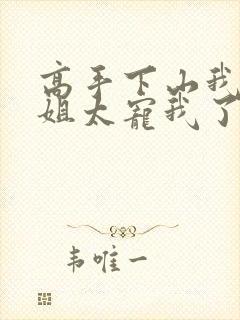 高手下山我
姐太宠我了
韦唯一